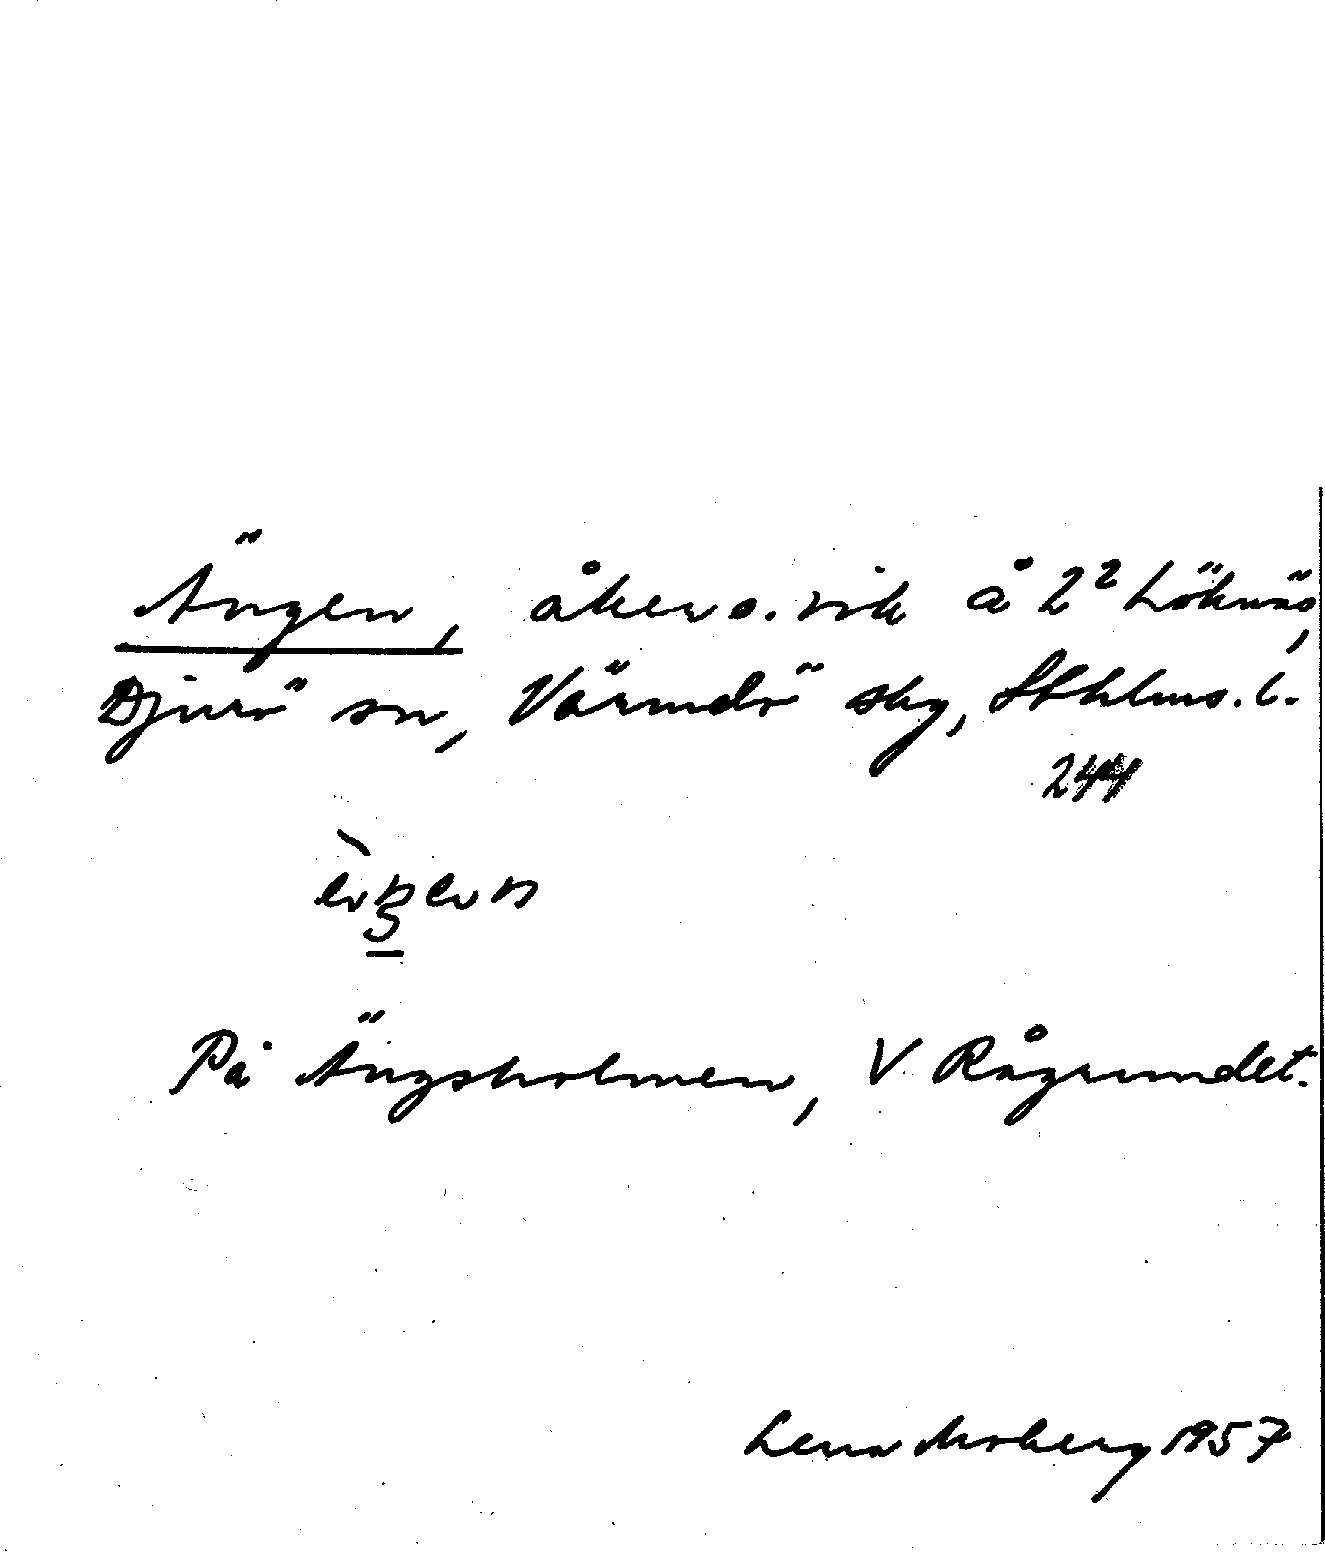 Ängen, åker o. vik å 2² Löknäs,
Djurö sn, Värmdö skg, Sthlms. l.
244
På Ängsholmen, V Rågrundet.
Lena Moberg 1957